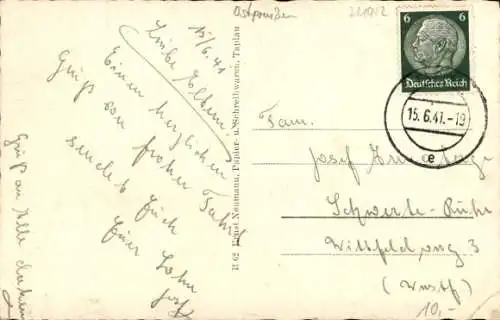 Ostpreußen
15/6.41
Liebe Eltern!
Einen herzlichen
Gruß von froher Fahrt
sendet Euch
Euer Sohn
Josef
Gruß an Alle daheim
H 62 Ernst Neumann, Papier- u. Schreibwaren, Tapiau
6 6
Deutsches Reich
15.6.41.-19
e
Fam.
Josef
Schwerte-Ruhr
3
(Westf)
10,-